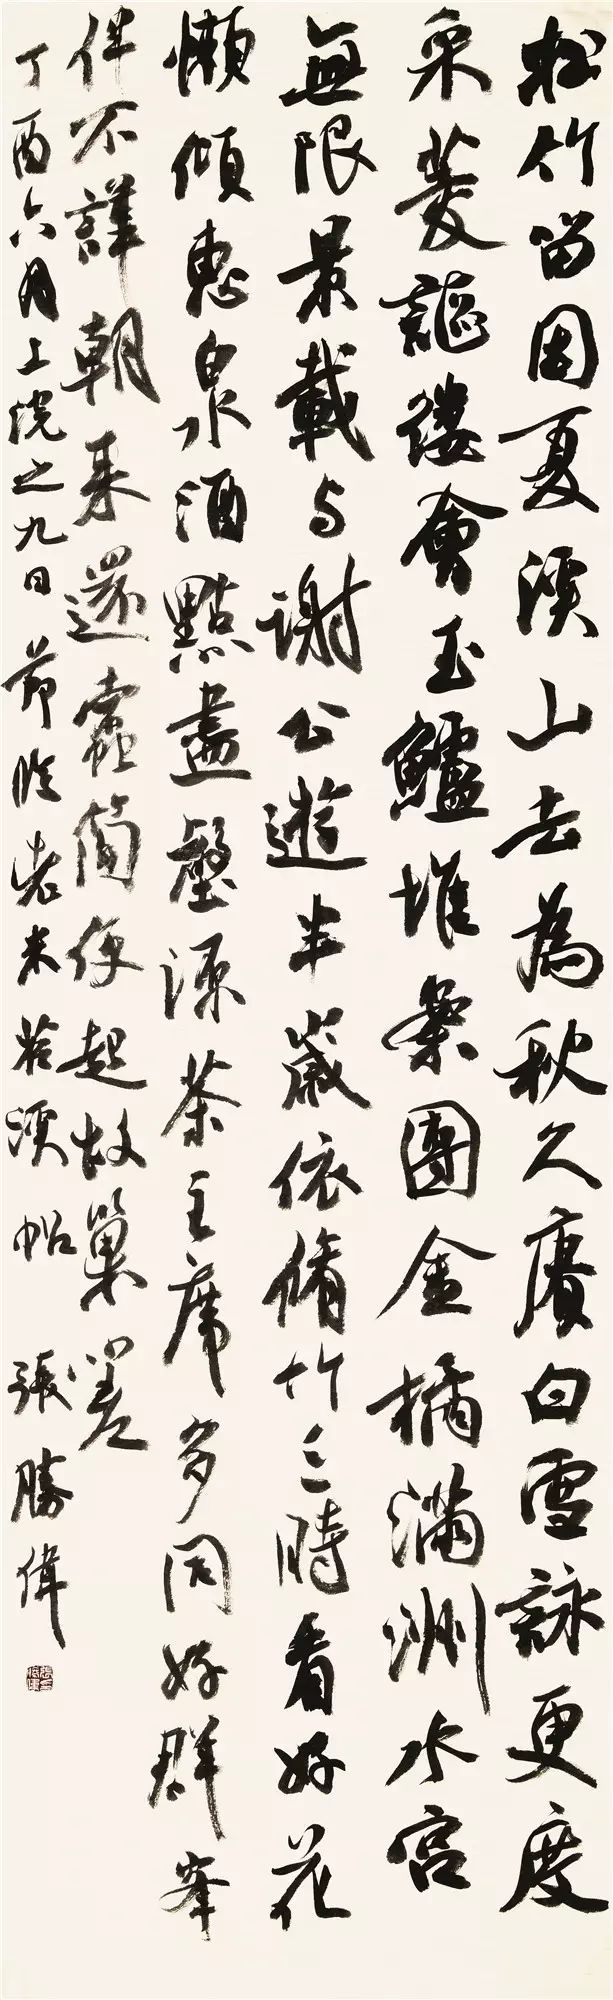 松竹留因夏溪山去為秋久賡白雪詠更度
采菱謳縷會玉鱸堆案團金橘滿洲水宮
無限景載与謝公遊半歲依脩竹三時看好花
懶傾惠泉酒點盡壑源茶主席多同好群峯
伴不譁朝来還蠹簡便起故巢嗟
丁酉六月上浣之九日節臨老米苕溪帖 張勝偉